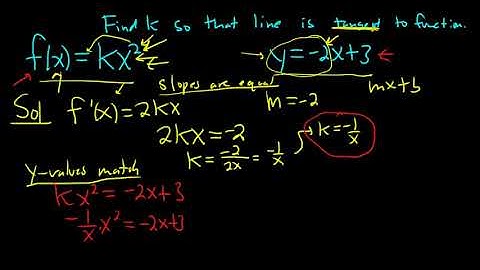 Find k so that line is tangent to function.
f(x) = kx² y = -2x+3
slopes are equal mx+b
Sol f'(x) = 2kx m = -2
2kx = -2
k = -2/2x = -1/x → k = -1/x
y-values match
kx² = -2x+3
-1/x · x² = -2x+3